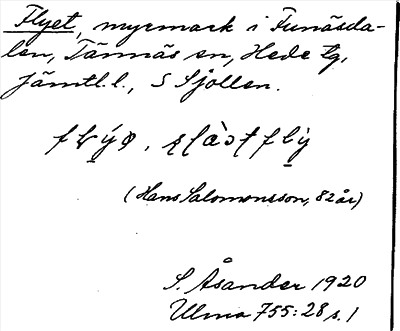 Flyet, myrmark i Funäsda-
len, Tännäs sn, Hede tg,
Jämtl. l., S Sjollen.
(Hans Salomonsson, 82 år)
S. Åsander 1920
Ulma 755:28 s. 1